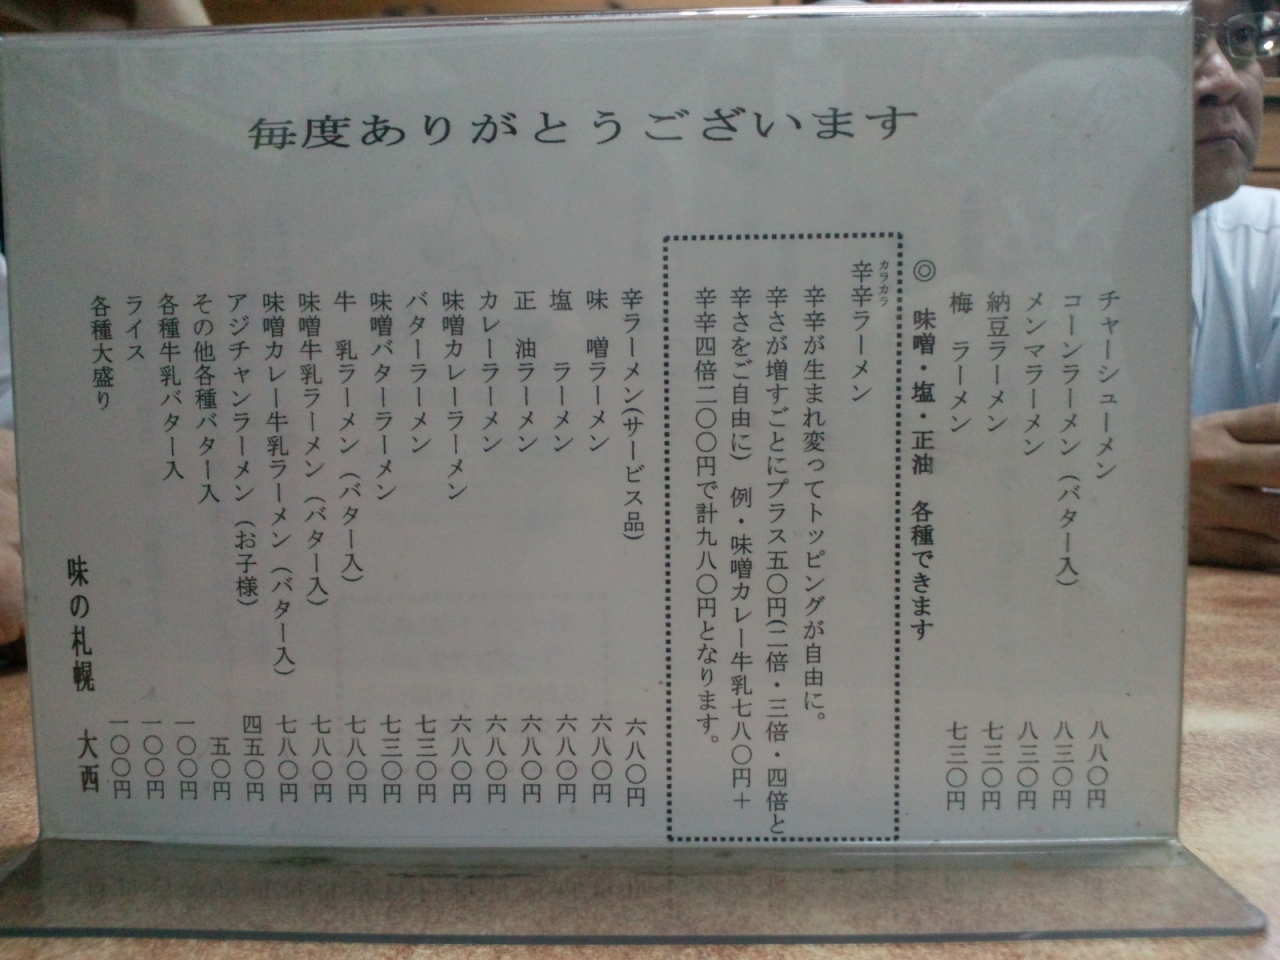 毎度ありがとうございます
チャーシューメン 八八〇円
コーンラーメン（バター入） 八三〇円
メンマラーメン 八三〇円
納豆ラーメン 七三〇円
梅　ラーメン 七三〇円
◎　味噌・塩・正油　各種できます
カラカラ
辛辛ラーメン
辛辛が生まれ変ってトッピングが自由に。
辛さが増すごとにプラス五〇円(二倍・三倍・四倍と
辛さをご自由に)　例・味噌カレー牛乳七八〇円＋
辛辛四倍二〇〇円で計九八〇円となります。
辛ラーメン(サービス品) 六八〇円
味　噌ラーメン 六八〇円
塩　ラーメン 六八〇円
正　油ラーメン 六八〇円
カレーラーメン 六八〇円
味噌カレーラーメン 六八〇円
バターラーメン 七三〇円
味噌バターラーメン 七三〇円
牛　乳ラーメン（バター入） 七八〇円
味噌牛乳ラーメン（バター入） 七八〇円
味噌カレー牛乳ラーメン（バター入） 七八〇円
アジチャンラーメン（お子様） 四五〇円
その他各種バター入 五〇円
各種牛乳バター入 一〇〇円
ライス 一〇〇円
各種大盛り 一〇〇円
味の札幌　大西